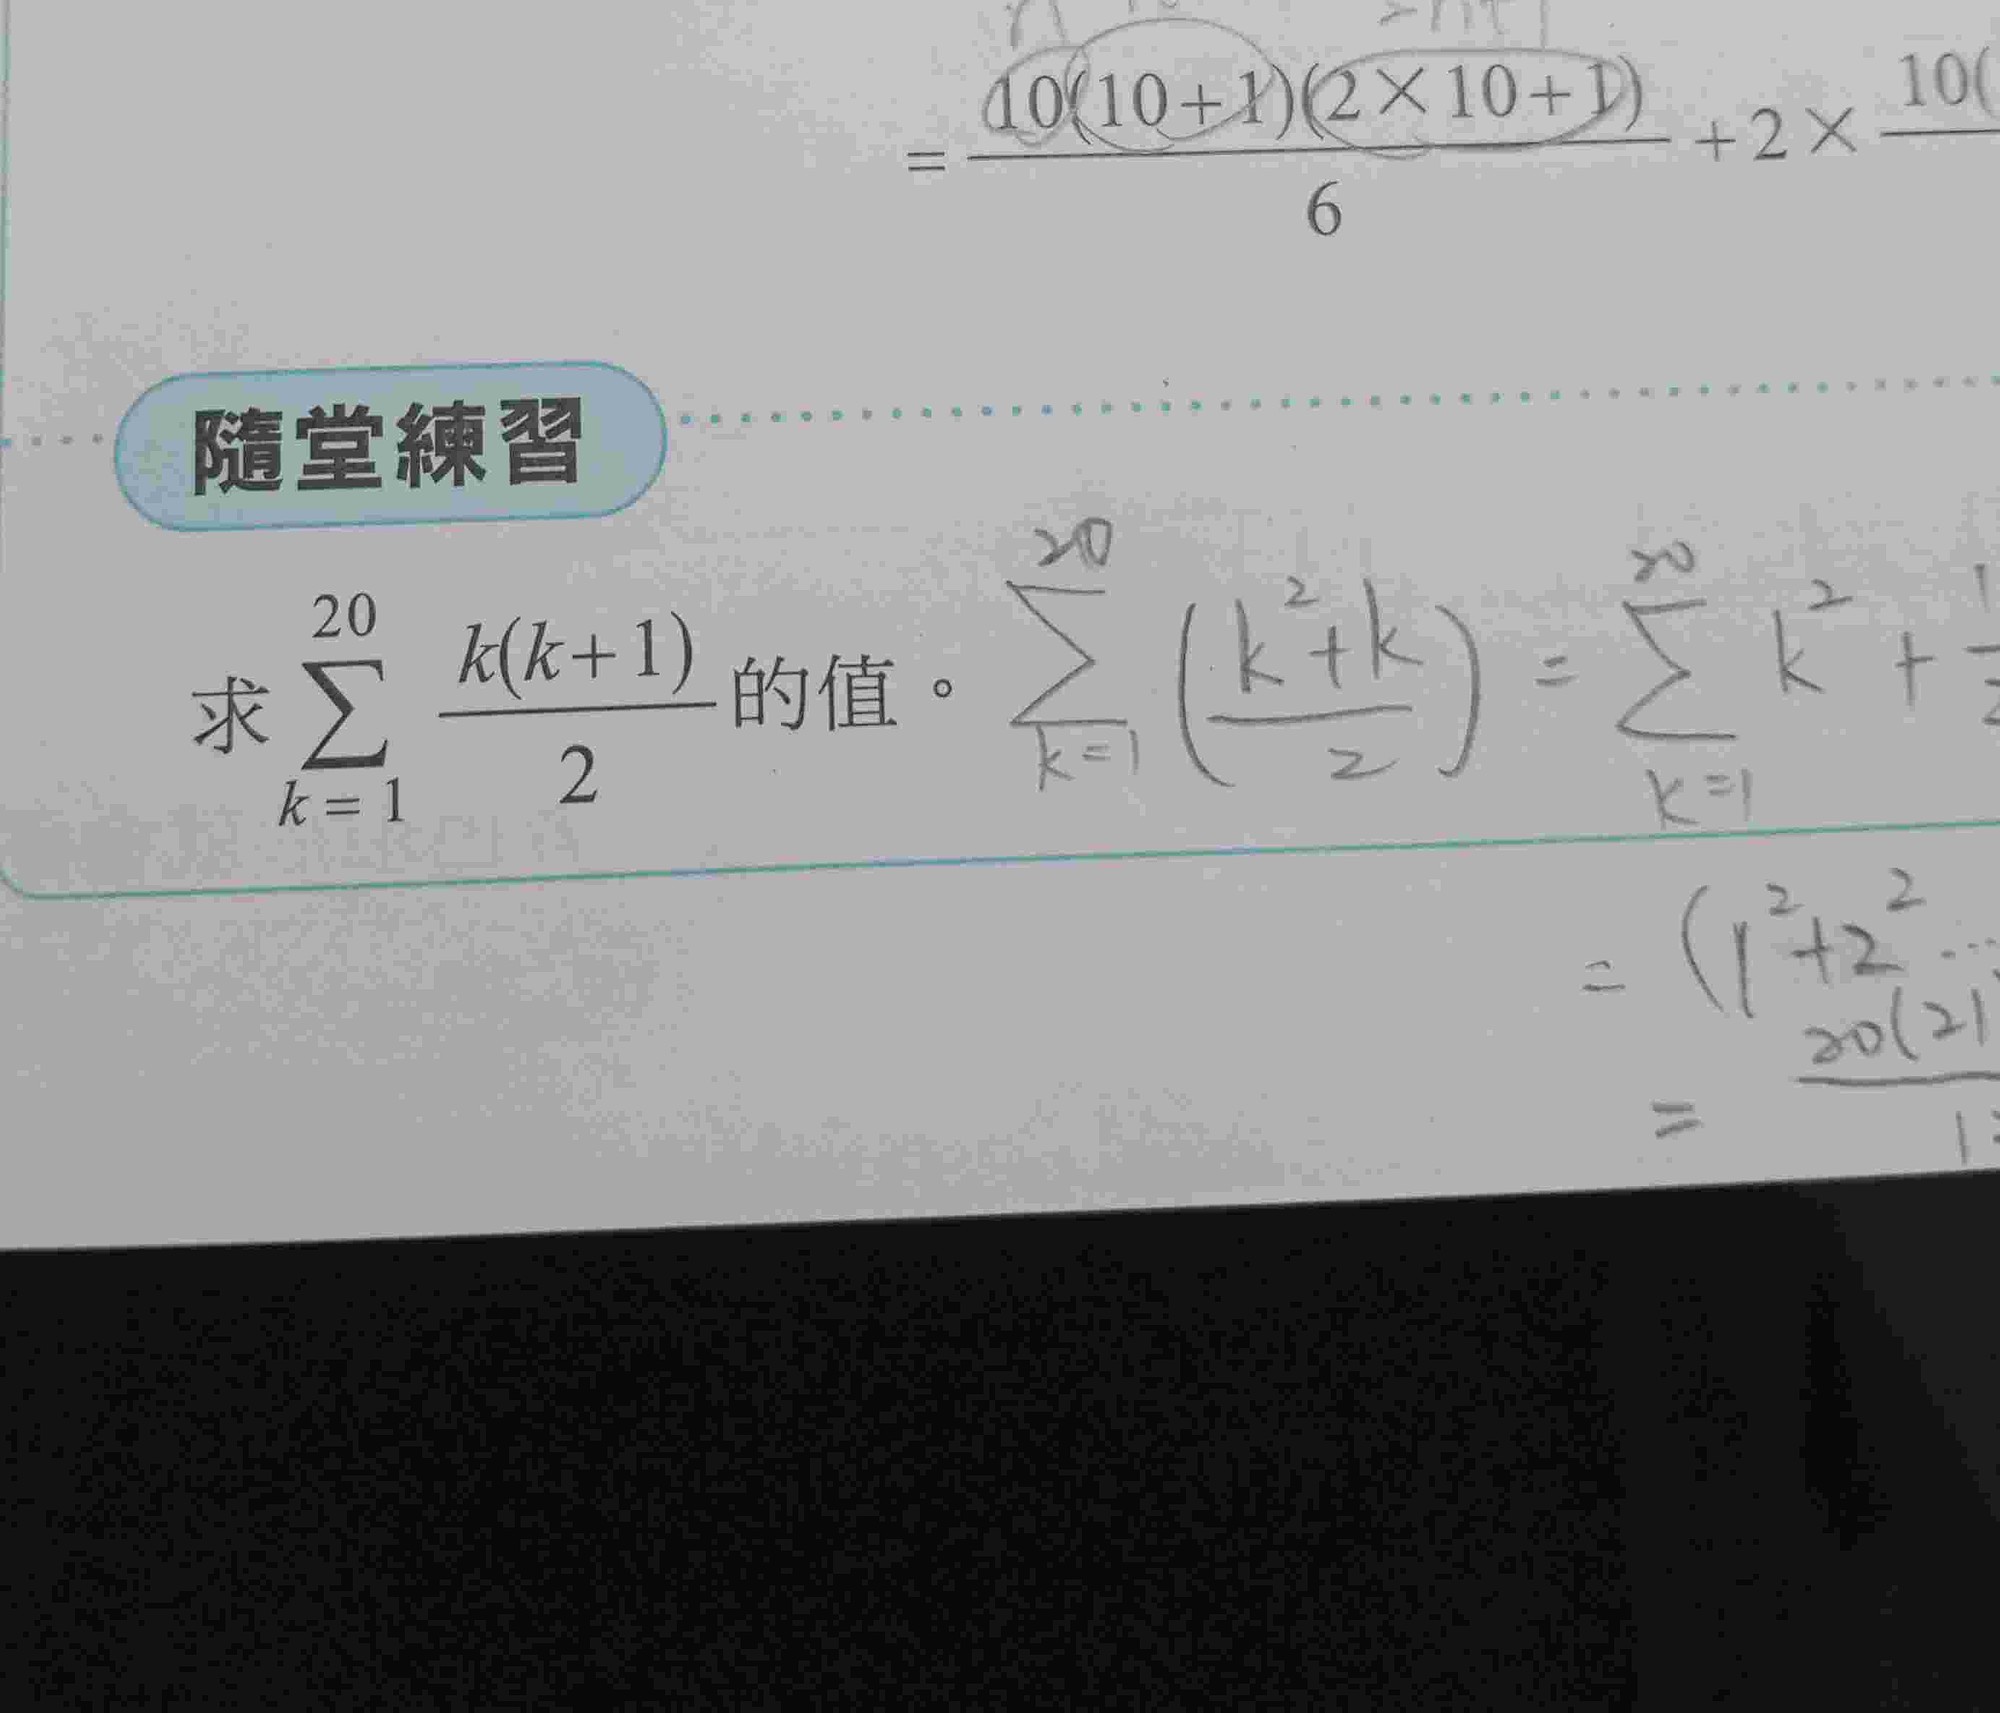 = 10(10+1)(2×10+1)/6 + 2× 10(
隨堂練習
求 ∑_{k=1}^{20} k(k+1)/2 的值。 ∑_{k=1}^{20} (k²+k/2) = ∑_{k=1}^{20} k² +
= (1²+2² ...
= 20(21